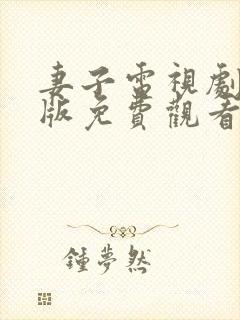 妻子電視劇
版免費觀看
鍾夢然